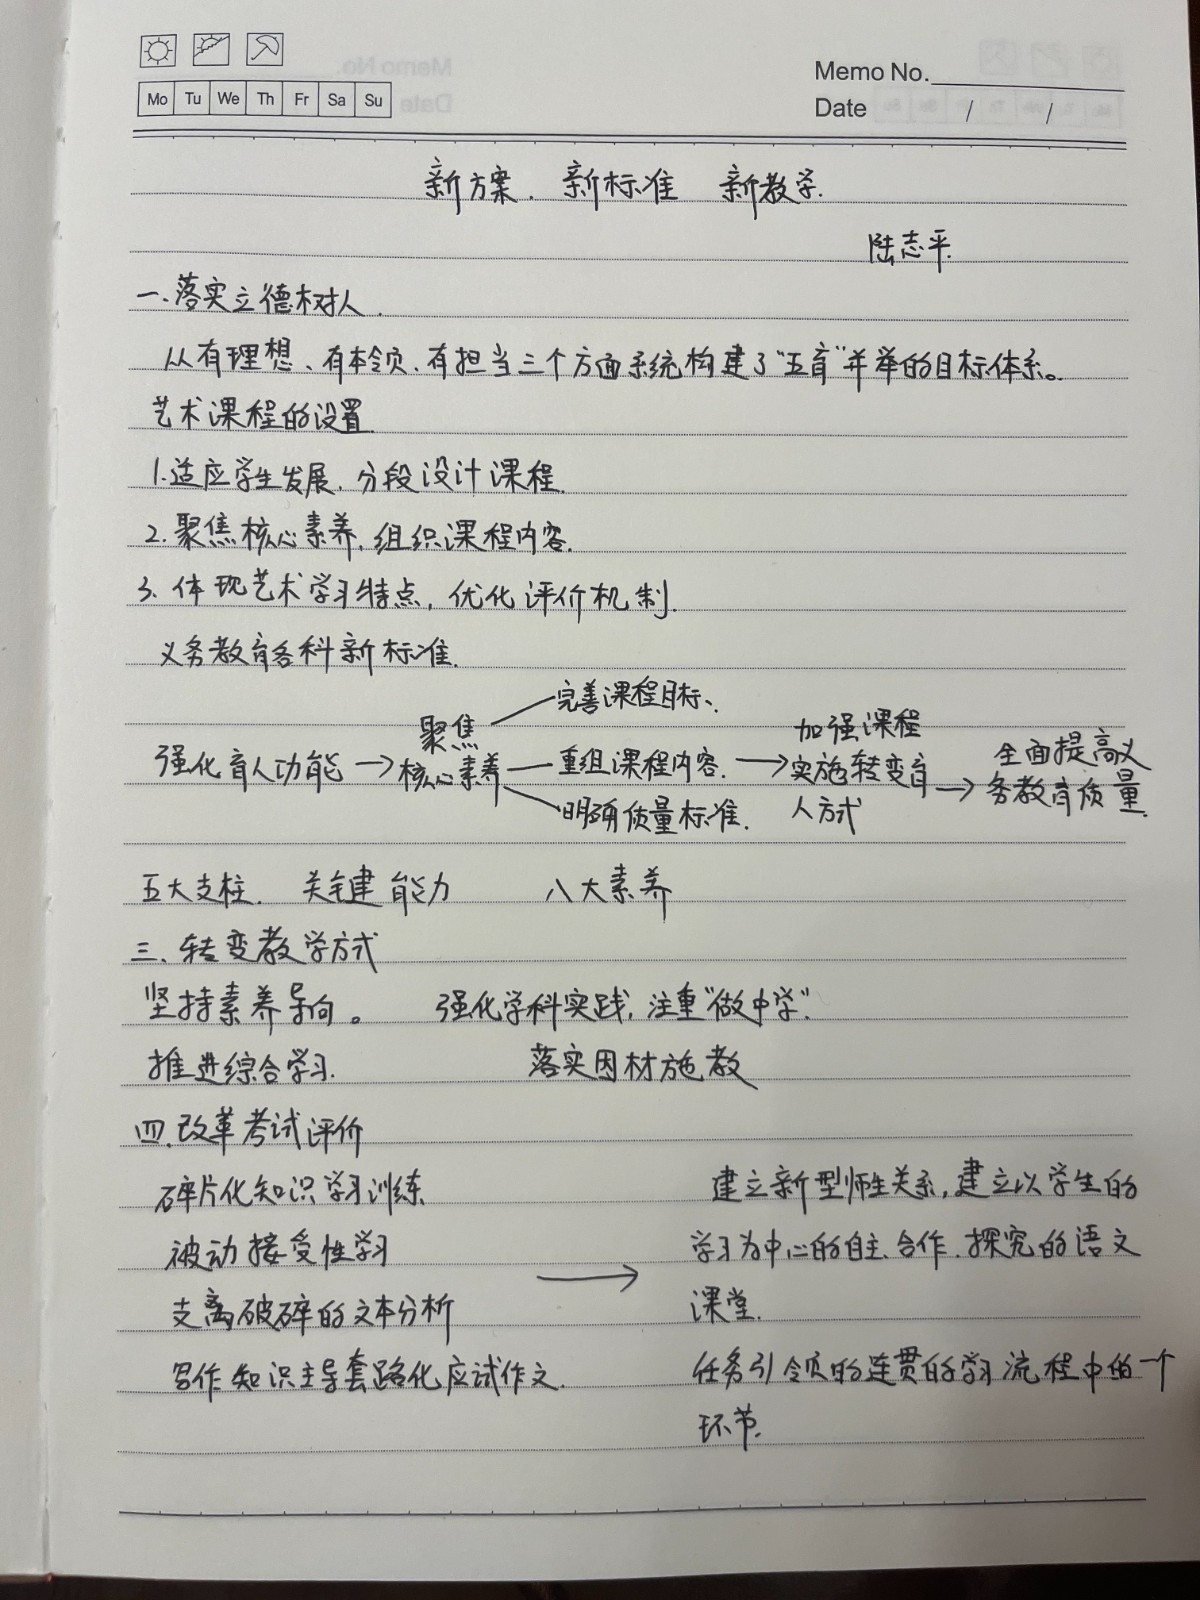 Memo No.
Mo Tu We Th Fr Sa Su
Date / /
新方案. 新标准 新教学.
陆志平.
一.落实立德树人.
从有理想、有本领、有担当三个方面系统构建了"五育"并举的目标体系。
艺术课程的设置.
1.适应学生发展.分段设计课程.
2.聚焦核心素养,组织课程内容.
3.体现艺术学习特点,优化评价机制.
义务教育各科新标准.
强化育人功能 →
聚焦
核心素养
完善课程目标、
重组课程内容. →
明确质量标准.
加强课程
实施转变育
人方式 →
全面提高义
务教育质量.
五大支柱. 关键能力 八大素养
三、转变教学方式
坚持素养导向。 强化学科实践,注重"做中学".
推进综合学习. 落实因材施教
四.改革考试评价
碎片化知识学习训练
被动接受性学习
支离破碎的文本分析
写作知识主导套路化应试作文.
→
建立新型师生关系,建立以学生的
学习为中心的自主、合作.探究的语文
课堂.
任务引领的连贯的学习流程中的一个
环节.